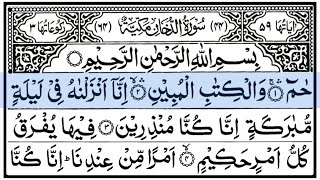 اٰیاتھا ۵۹ (۴۴) سُوْرَةُ الدُّخَانِ مَكِّيَّةٌ (۶۴) رُکوعاتھا ۳
بِسْمِ اللّٰهِ الرَّحْمٰنِ الرَّحِيْمِ
حٰمٓ ۚ‏﴿۱﴾ وَالْكِتٰبِ الْمُبِيْنِ ۙ‏﴿۲﴾ اِنَّاۤ اَنْزَلْنٰهُ فِىْ لَيْلَةٍ
مُّبٰرَكَةٍ اِنَّا كُنَّا مُنْذِرِيْنَ ﴿۳﴾ فِيْهَا يُفْرَقُ
كُلُّ اَمْرٍ حَكِيْمٍ ۙ‏﴿۴﴾ اَمْرًا مِّنْ عِنْدِنَا ؕ اِنَّا كُنَّا